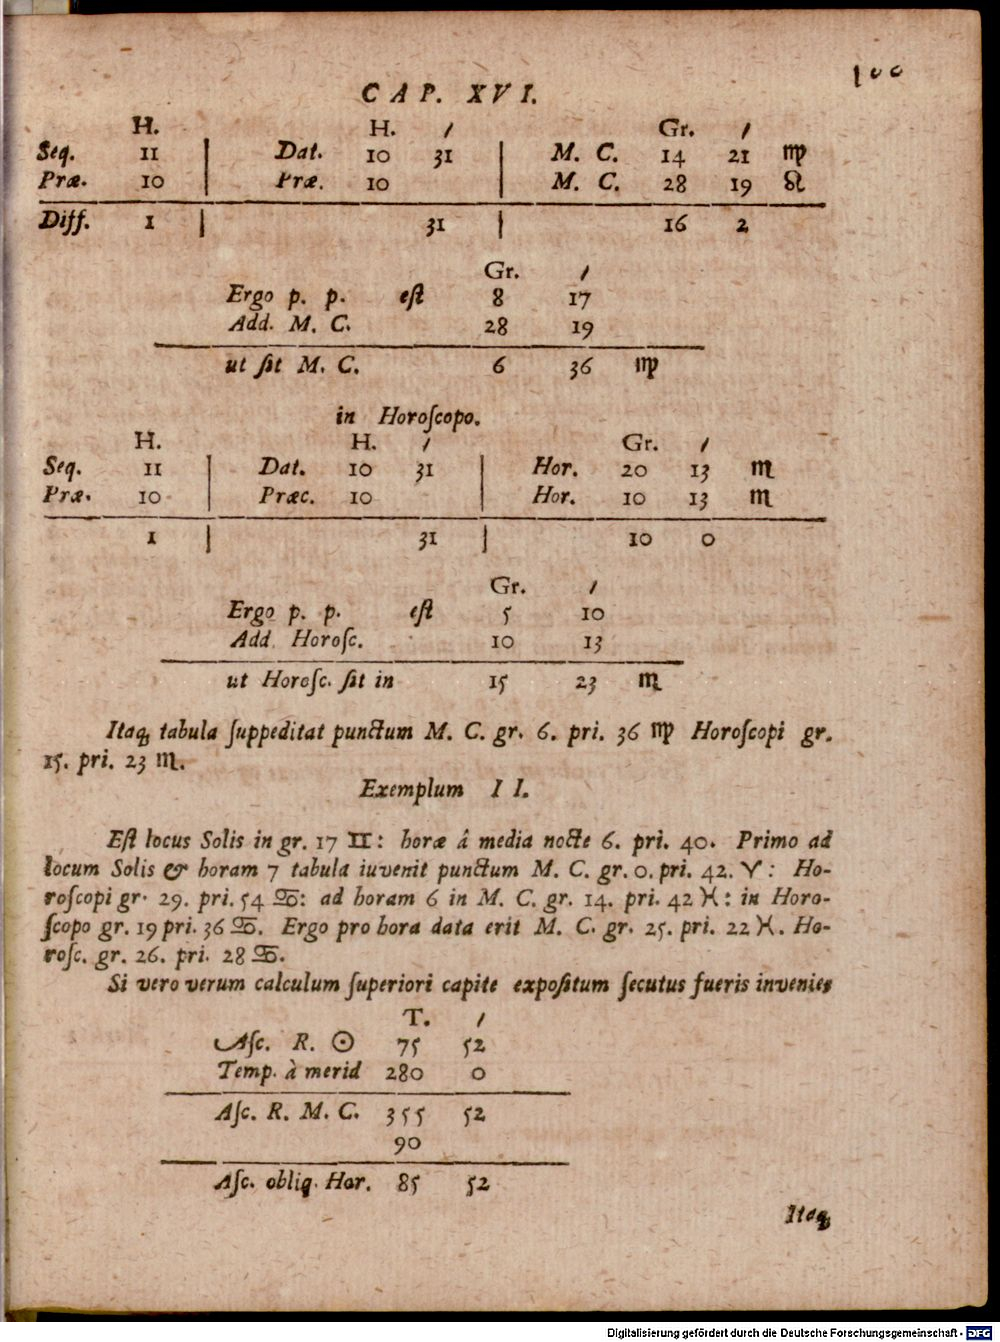 100
CAP. XVI.
H. | H. ′ | Gr. ′
Seq. 11 | Dat. 10 31 | M. C. 14 21 ♍
Præ. 10 | Præ. 10 | M. C. 28 19 ♌
Diff. 1 | 31 | 16 2
Gr. ′
Ergo p. p. eſt 8 17
Add. M. C. 28 19
ut ſit M. C. 6 36 ♍
in Horoſcopo.
H. | H. ′ | Gr. ′
Seq. 11 | Dat. 10 31 | Hor. 20 13 ♏
Præ. 10 | Præc. 10 | Hor. 10 13 ♏
1 | 31 | 10 0
Gr. ′
Ergo p. p. eſt 5 10
Add. Horoſc. 10 13
ut Horoſc. ſit in 15 23 ♏
Itaq; tabula ſuppeditat punctum M. C. gr. 6. pri. 36 ♍ Horoſcopi gr.
15. pri. 23 ♏.
Exemplum II.
Eſt locus Solis in gr. 17 ♊: horæ â media nocte 6. pri. 40. Primo ad
locum Solis & horam 7 tabula iuvenit punctum M. C. gr. 0. pri. 42. ♈: Ho-
roſcopi gr. 29. pri. 54 ♋: ad horam 6 in M. C. gr. 14. pri. 42 ♓: in Horo-
ſcopo gr. 19 pri. 36 ♋. Ergo pro hora data erit M. C. gr. 25. pri. 22 ♓. Ho-
roſc. gr. 26. pri. 28 ♋.
Si vero verum calculum ſuperiori capite expoſitum ſecutus fueris invenies
T. ′
Aſc. R. ☉ 75 52
Temp. à merid 280 0
Aſc. R. M. C. 355 52
90
Aſc. obliq. Hor. 85 52
Itaq;
Digitalisierung gefördert durch die Deutsche Forschungsgemeinschaft - DFG